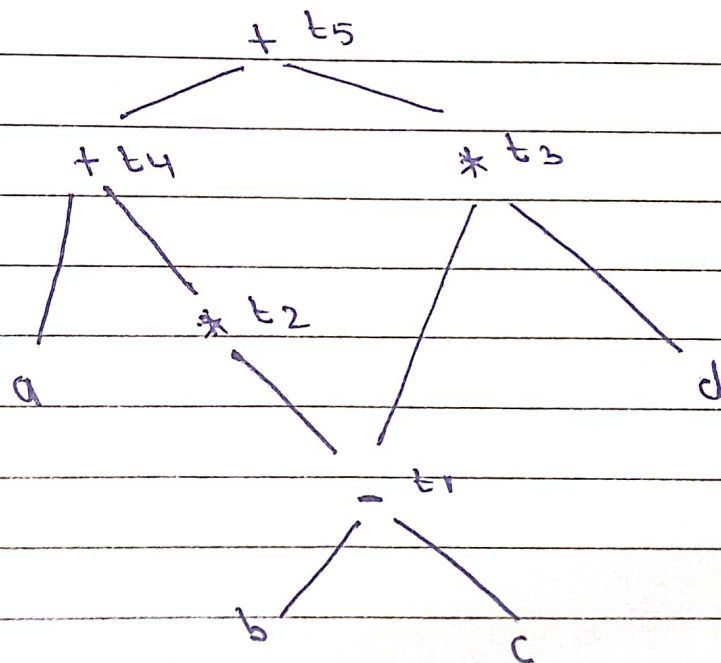 + t5
+ t4 * t3
* t2
a d
- t1
b c